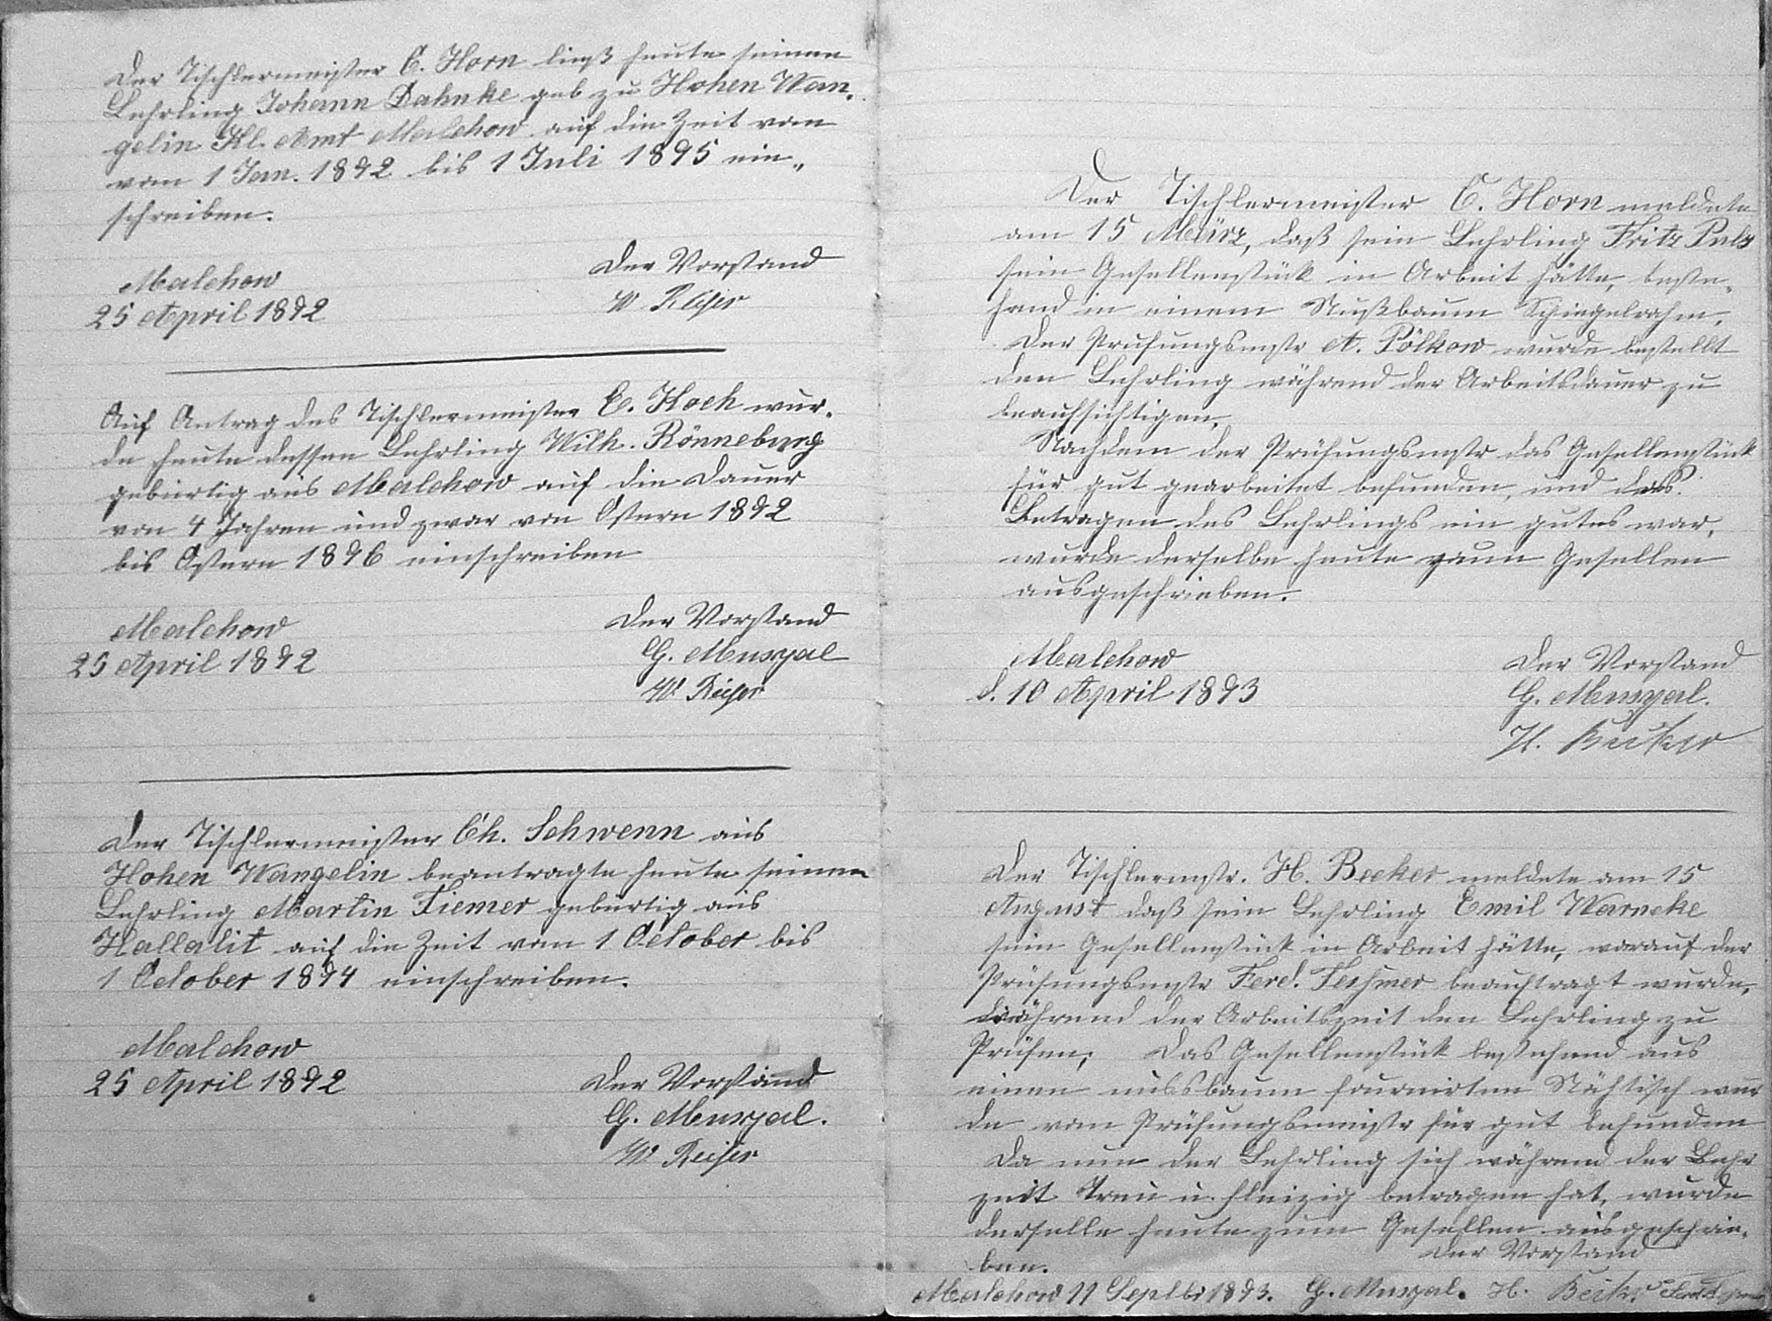 Der Tischlermeister C. Horn ließ heute seinen
Lehrling Johann Dahnke geb zu Hohen Wan-
gelin Kl. Amt Malchow auf die Zeit von
vom 1 Jan. 1892 bis 1 Juli 1895 ein-
schreiben.
Malchow
25 April 1892
Der Vorstand
W. Reißer
Auf Antrag des Tischlermeister C. Koch wur-
de heute dessen Lehrling Wilh. Rönneburg
gebürtig aus Malchow auf die Dauer
von 4 Jahren und zwar von Ostern 1892
bis Ostern 1896 einschreiben
Malchow
25 April 1892
Der Vorstand
G. Musgal
W. Reißer
Der Tischlermeister Ch. Schwenn aus
Hohen Wangelin beantragte heute seinen
Lehrling Martin Tiemer gebürtig aus
Hallalit auf die Zeit vom 1 October bis
1 October 1894 einschreiben.
Malchow
25 April 1892
Der Vorstand
G. Musgal.
W. Reißer
Der Tischlermeister C. Horn meldete
am 15 März, daß sein Lehrling Fritz Puls
sein Gesellenstück in Arbeit hätte, beste-
hend in einem Nußbaum Spiegelrahm.
Der Prüfungsmstr A. Pölkow wurde bestellt
den Lehrling während der Arbeitsdauer zu
beaufsichtigen.
Nachdem der Prüfungsmstr das Gesellenstück
für gut gearbeitet befunden, und das
Betragen des Lehrlings ein gutes war,
wurde derselbe heute zum Gesellen
ausgeschrieben.
Malchow
d. 10 April 1893
Der Vorstand
G. Musgal.
H. Becker
Der Tischlermstr. H. Becker meldete am 15
August daß sein Lehrling Emil Warncke
sein Gesellenstück in Arbeit hätte, worauf der
Prüfungsmstr Ferd. beauftragt wurde,
während der Arbeitszeit den Lehrling zu
Prüfen; Das Gesellenstück bestehend aus
einen nussbaum fournirten Nähtisch wur
de vom Prüfungsmeistr für gut befunden
Da nun der Lehrling sich während der Lehr
zeit Treu u. fleizig betragen hat, wurde
derselbe heute zum Gesellen ausgeschrie-
ben.
Der Vorstand
Malchow 11 Septbr 1893. G. Musgal. H. Becker